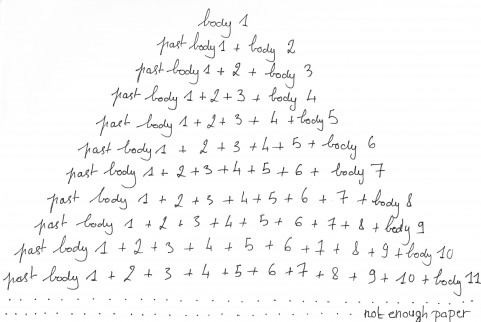 body 1
past body 1 + body 2
past body 1 + 2 + body 3
past body 1 + 2 + 3 + body 4
past body 1 + 2 + 3 + 4 + body 5
past body 1 + 2 + 3 + 4 + 5 + body 6
past body 1 + 2 + 3 + 4 + 5 + 6 + body 7
past body 1 + 2 + 3 + 4 + 5 + 6 + 7 + body 8
past body 1 + 2 + 3 + 4 + 5 + 6 + 7 + 8 + body 9
past body 1 + 2 + 3 + 4 + 5 + 6 + 7 + 8 + 9 + body 10
past body 1 + 2 + 3 + 4 + 5 + 6 + 7 + 8 + 9 + 10 + body 11
. . . . . . . . . . . . . . . . . . . . . . . . . . . . . . . . . . . .
. . . . . . . . . . . . . . . . . . . . . . . . . . . not enough paper